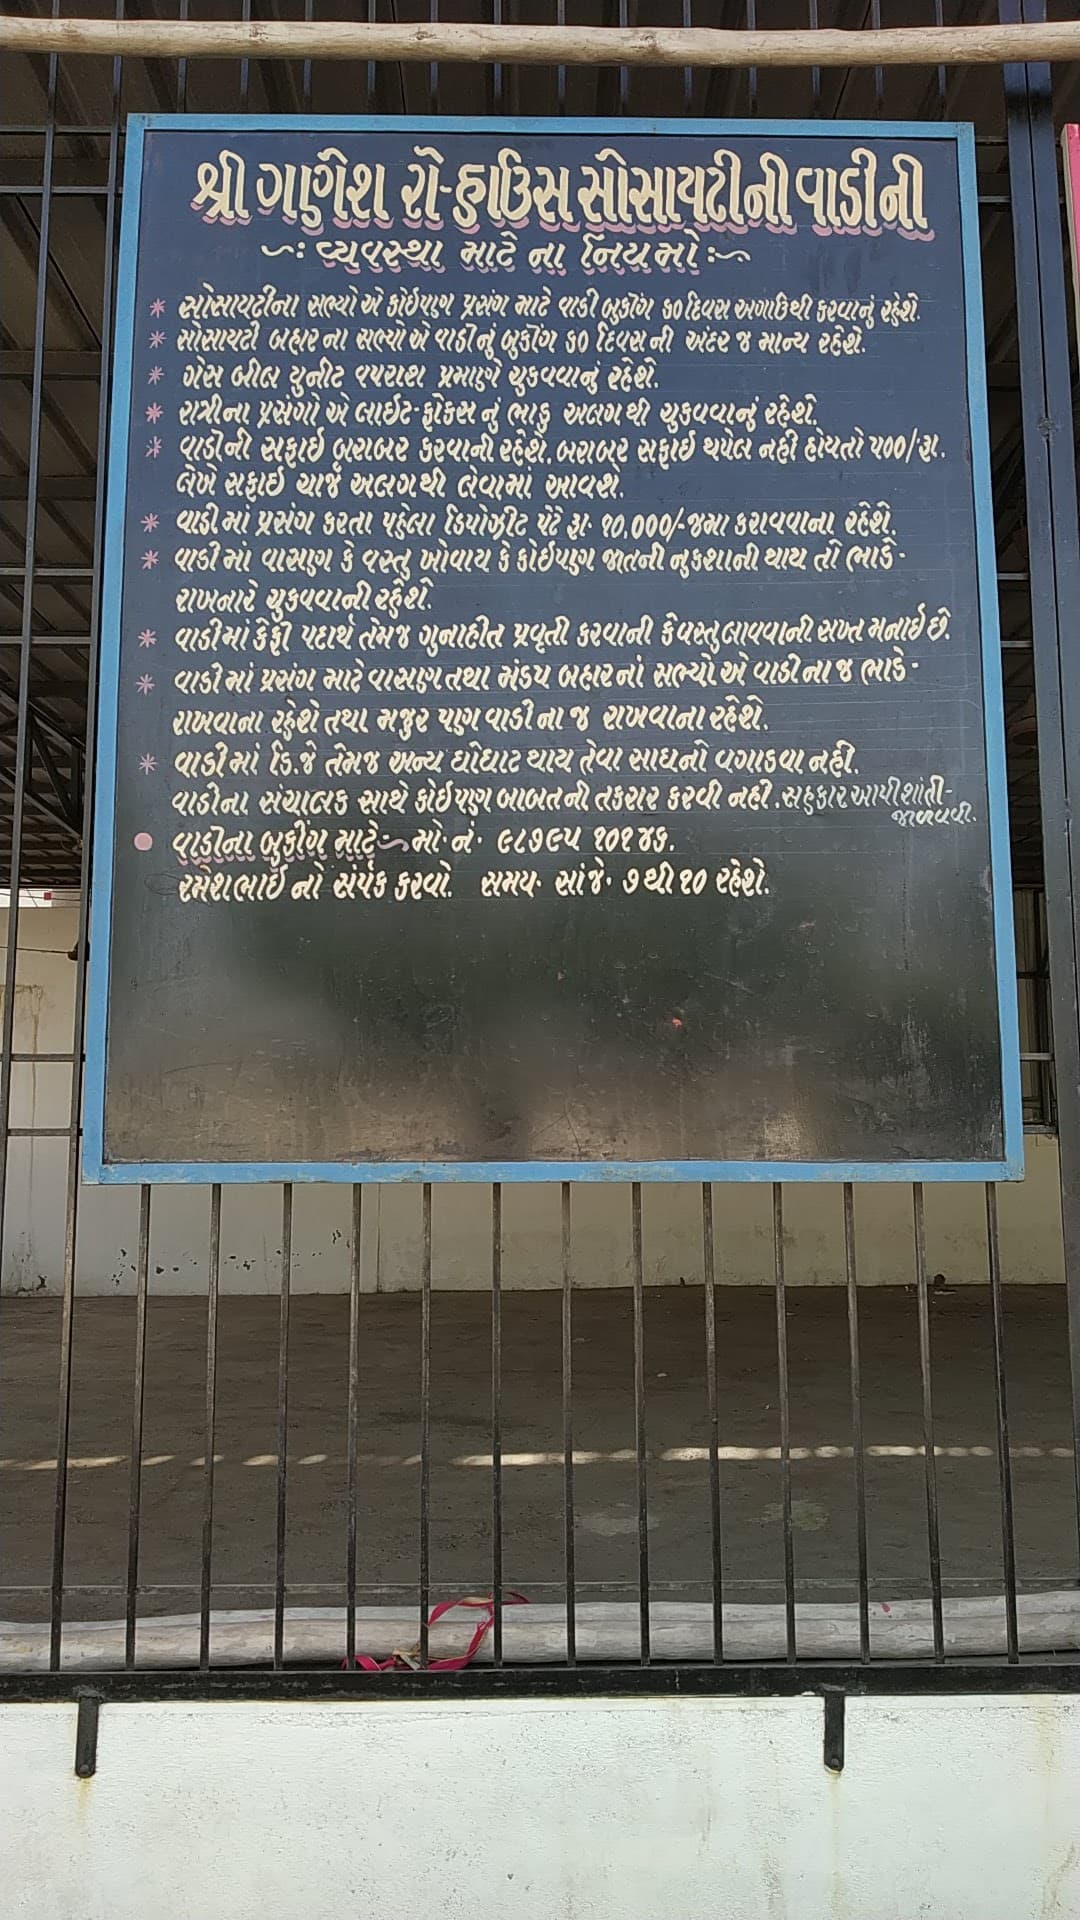 શ્રી ગણેશ રો-હાઉસ સોસાયટીની વાડીની
~: વ્યવસ્થા માટે ના નિયમો :~
* સોસાયટીના સભ્યો એ કોઈપણ પ્રસંગ માટે વાડી બુકીંગ ૩૦ દિવસ અગાઉથી કરવાનું રહેશે.
* સોસાયટી બહાર ના સભ્યો એ વાડીનું બુકીંગ ૩૦ દિવસ ની અંદર જ માન્ય રહેશે.
* ગેસ બીલ યુનીટ વપરાશ પ્રમાણે ચુકવવાનું રહેશે.
* રાત્રીના પ્રસંગો એ લાઈટ-ફોકસ નું ભાડુ અલગ થી ચુકવવાનું રહેશે.
* વાડીની સફાઈ બરાબર કરવાની રહેશે. બરાબર સફાઈ થયેલ નહી હોયતો ૫૦૦/રૂા.
લેખે સફાઈ ચાર્જ અલગથી લેવામાં આવશે.
* વાડીમાં પ્રસંગ કરતા પહેલા ડિપોઝીટ પેટે રૂા. ૧૦,૦૦૦/-જમા કરાવવાના રહેશે.
* વાડીમાં વાસણ કે વસ્તુ ખોવાય કે કોઈપણ જાતની નુકશાની થાય તો ભાડે-
રાખનારે ચુકવવાની રહેશે.
* વાડીમાં કેફી પદાર્થ તેમજ ગુનાહીત પ્રવૃતી કરવાની કે વસ્તુ લાવવાની સખ્ત મનાઈ છે.
* વાડીમાં પ્રસંગ માટે વાસણ તથા મંડપ બહારનાં સભ્યો એ વાડી ના જ ભાડે-
રાખવાના રહેશે તથા મજુર પણ વાડી ના જ રાખવાના રહેશે.
* વાડીમાં ડિ.જે તેમજ અન્ય ઘોંઘાટ થાય તેવા સાધનો વગાડવા નહી.
વાડીના સંચાલક સાથે કોઈપણ બાબતની તકરાર કરવી નહી. સહકાર આપી શાંતી-
જાળવવી.
● વાડીના બુકીંગ માટે~ મો. નં. ૯૮૭૯૫ ૧૦૧૪૬.
રમેશભાઈ નો સંર્પક કરવો. સમય. સાંજે. ૭ થી ૧૦ રહેશે.